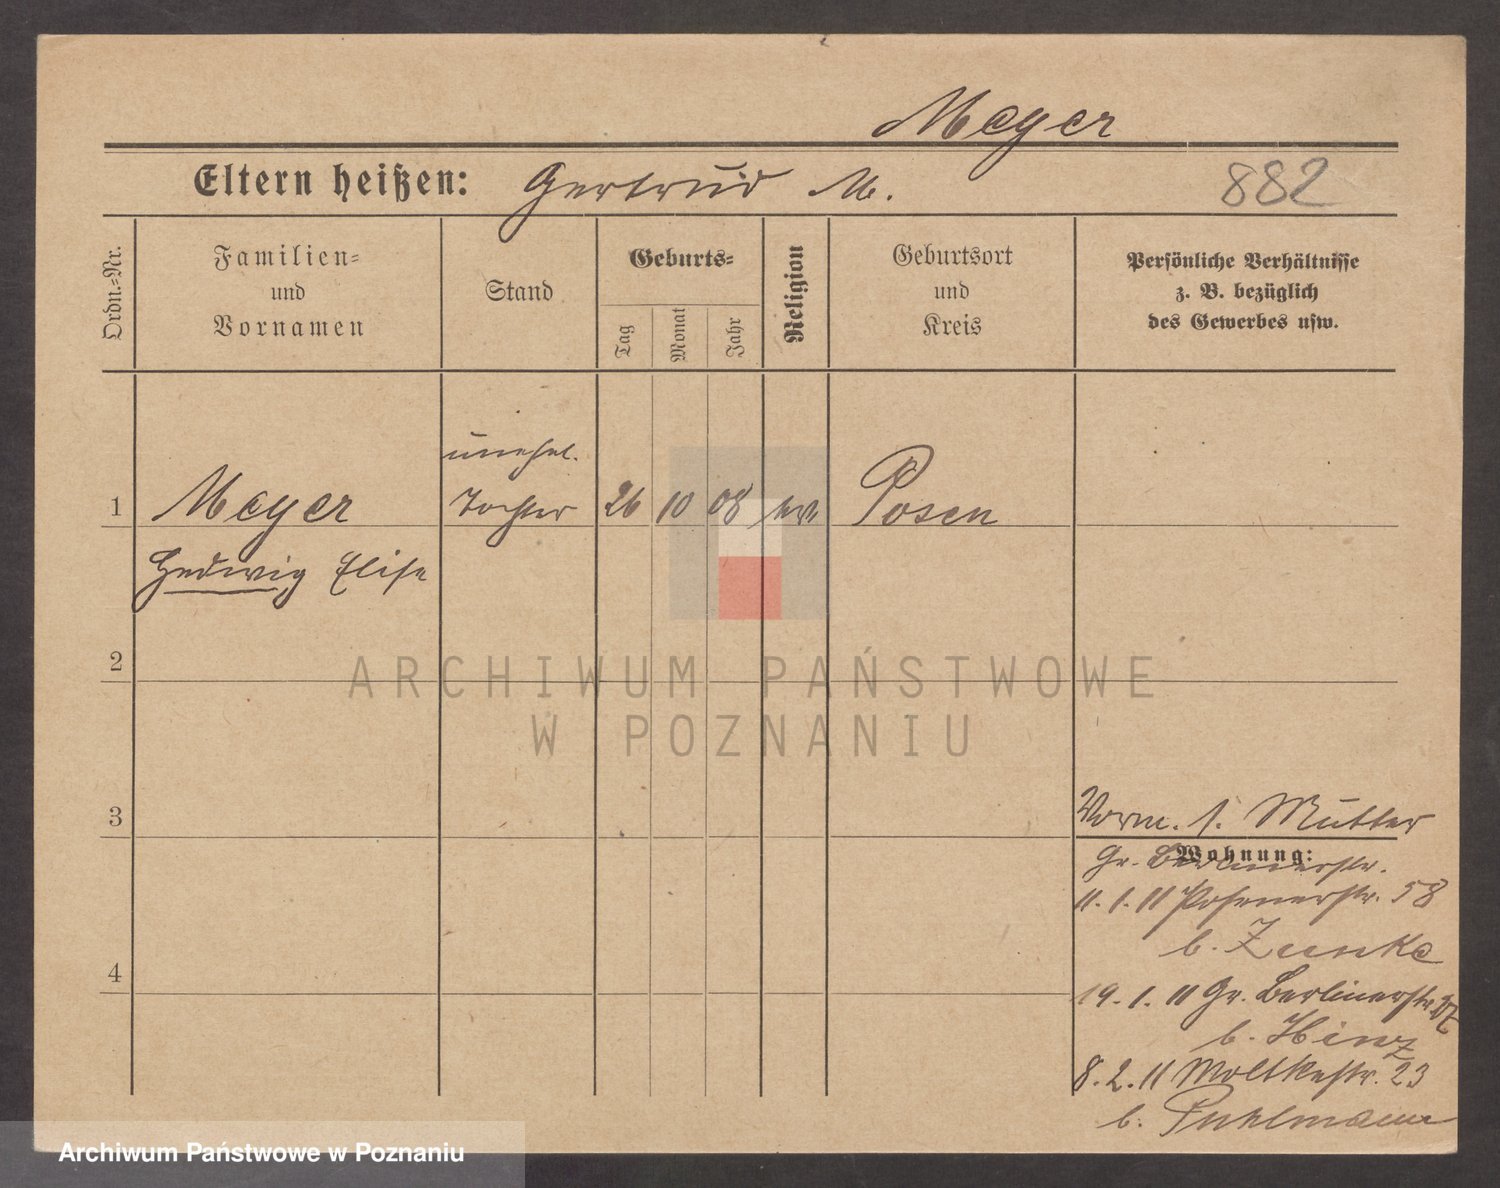 Meyer
Eltern heißen: Gertrud M. 882
Ordn.=Nr.
Familien=
und
Vornamen
Stand
Geburts=
Tag
Monat
Jahr
Religion
Geburtsort
und
Kreis
Persönliche Verhältnisse
z. B. bezüglich
des Gewerbes usw.
unehel.
1 Meyer Tochter 26 10 08 ev Posen
Hedwig Elise
2
ARCHIWUM PAŃSTWOWE
W POZNANIU
3
Vorm. s. Mutter
Wohnung:
Gr. Berlinerstr.
11. 1. 11 Posenerstr. 58
b. Zunke
4
19. 1. 11 Gr. Berlinerstr.
b. Hinz
8. 2. 11 Moltkestr. 23
b. Puhlmann
Archiwum Państwowe w Poznaniu